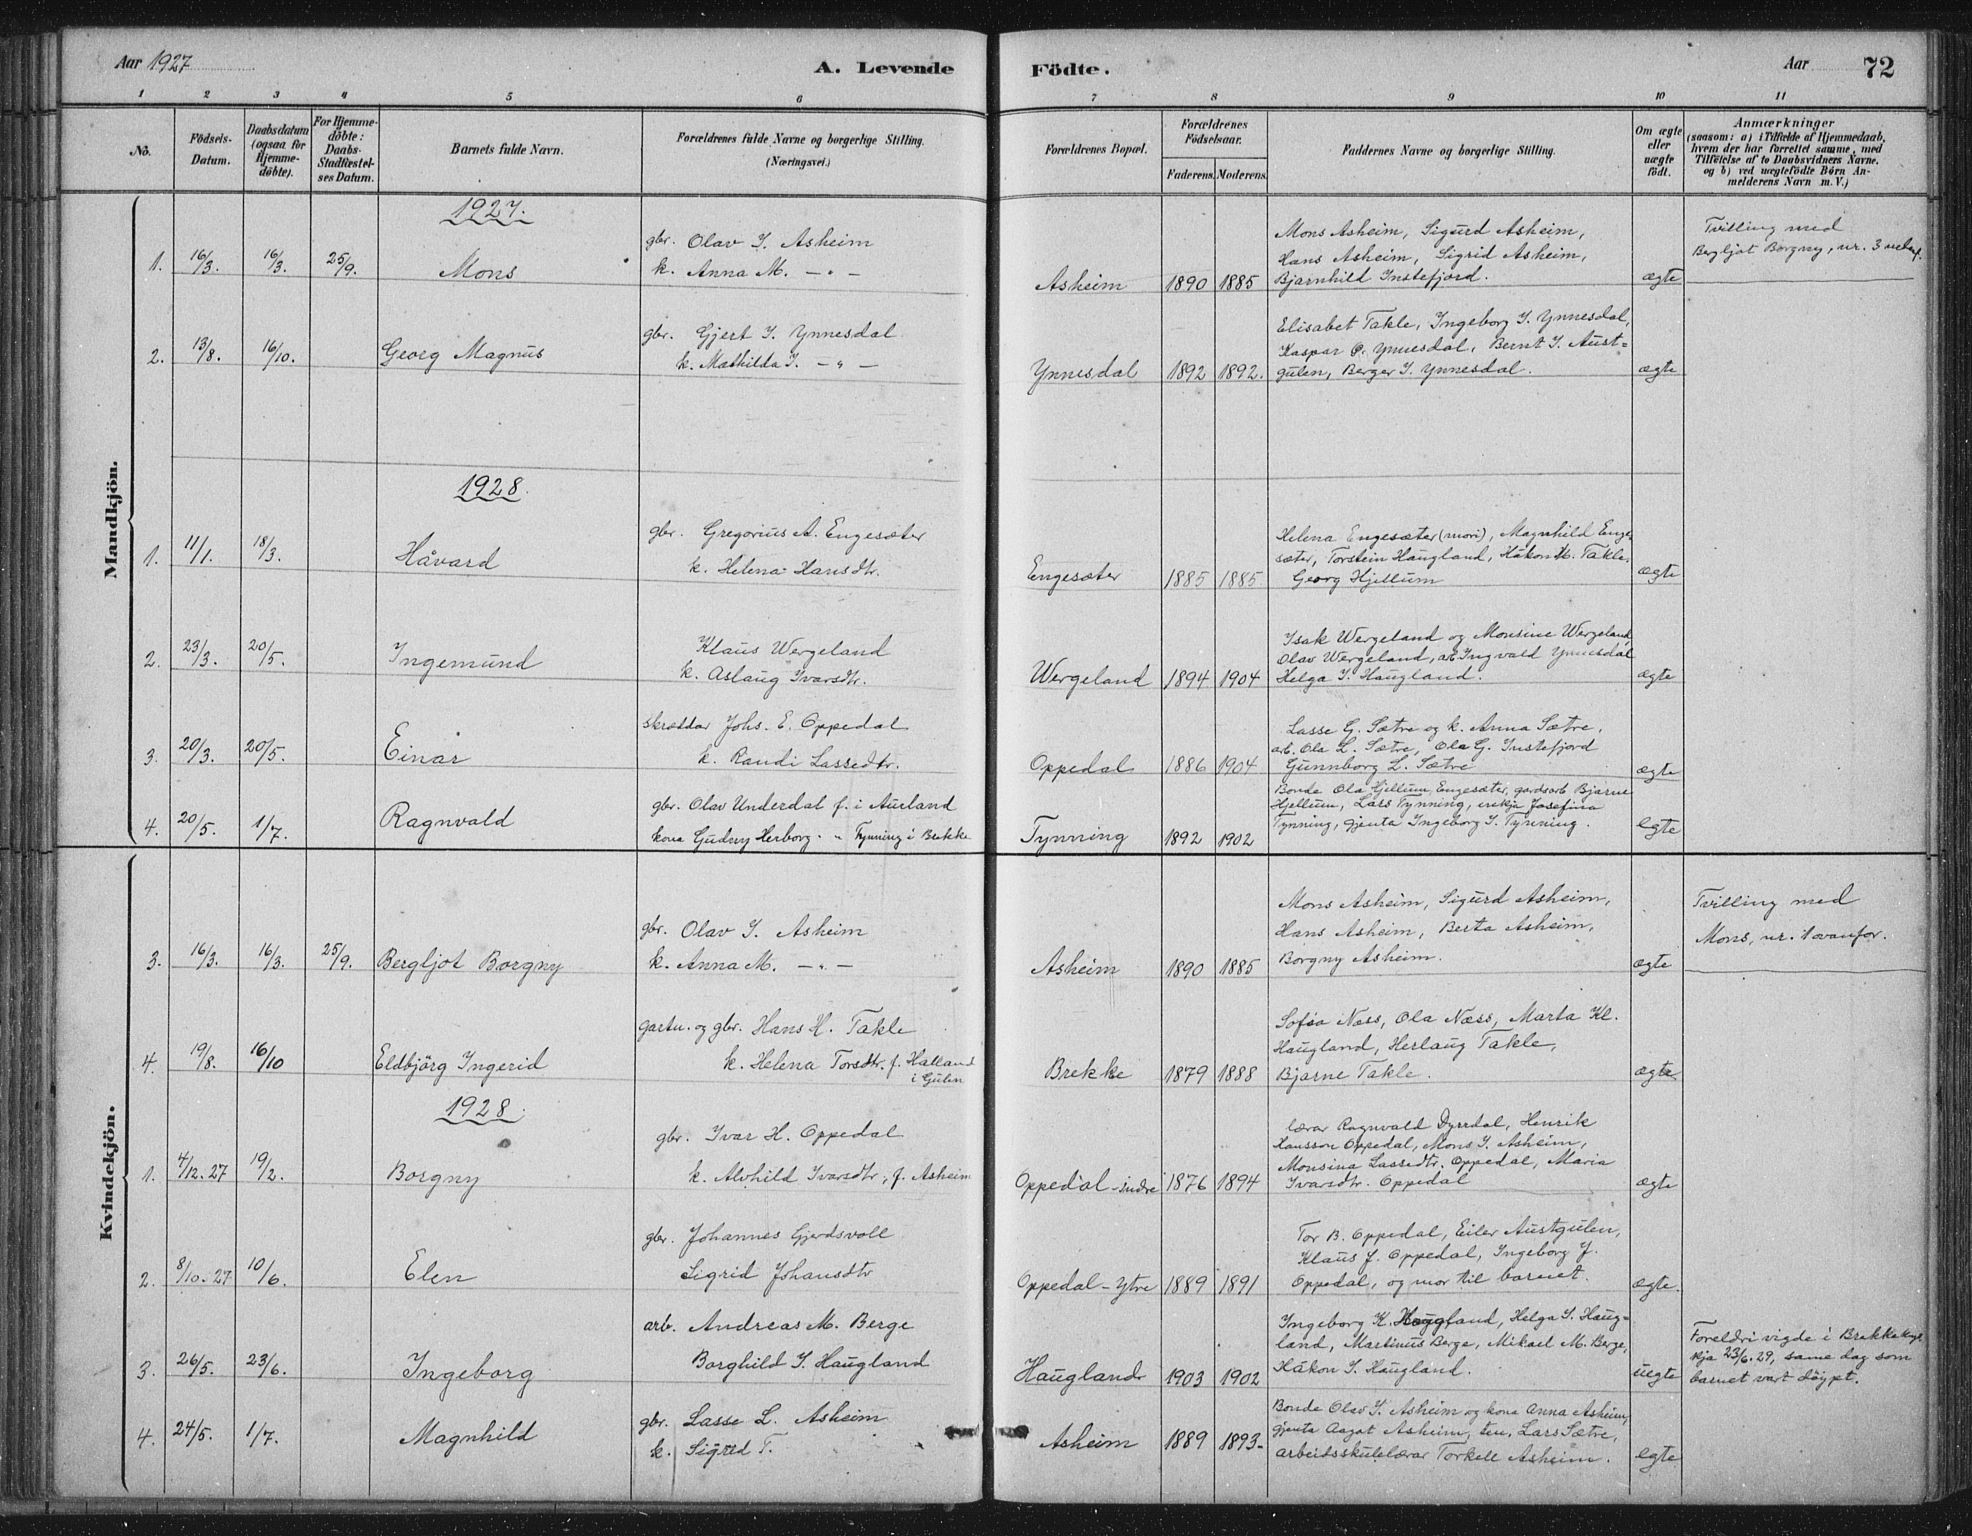 Aar 1927
A. Levende Födte.
Aar 72
1 2 3 4 5 6 7 8 9 10 11
Nô.
Födsels-Datum.
Daabsdatum (ogsaa for Hjemme-döbte).
For Hjemme-döbte: Daabs-Stadfæstel-ses Datum.
Barnets fulde Navn.
Forældrenes fulde Navne og borgerlige Stilling. (Næringsvei.)
Forældrenes Bopæl.
Forældrenes Födselsaar.
Faderens. Moderens.
Faddernes Navne og borgerlige Stilling.
Om ægte eller uægte födt.
Anmærkninger
(saasom: a) i Tilfælde af Hjemmedaab,
hvem der har forrettet samme, med
Tilføielse af to Daabsvidners Navne,
og b) ved uægtefödte Børn An-
melderens Navn m. V.)
Mandkjön.
1927.
1. 16/3. 16/3. 25/9. Mons
gbr. Olav I. Asheim
k. Anna M. — " —
Asheim 1890 1885
Mons Asheim, Sigurd Asheim,
Hans Asheim, Sigrid Asheim,
Bjarnhild Instefjord.
ægte
Tvilling med
Bergljot Borgny, nr. 3
2. 13/8. 16/10. Georg Magnus
gbr. Gjert I. Ynnesdal
k. Mathilda I. — " —
Ynnesdal 1892 1892.
Elisabet Takle, Ingeborg I. Ynnesdal,
Kaspar O. Ynnesdal, Bernt I. Aust=
gulen, Berger I. Ynnesdal.
ægte
1928.
1. 11/1. 18/3. Håvard
gbr. Gregorius A. Engesæter
k. Helena Hansdtr.
Engesæter 1885 1885
Helena Engesæter (mori), Magnhild Enge-
sæter, Torstein Haugland, Håkon H. Takle.
Georg Hjellum
ægte
2. 23/3. 20/5. Ingemund
Klaus Wergeland
k. Aslaug Ivarsdtr.
Wergeland 1894 1904
Isak Wergeland og Monsine Wergeland,
Olav Wergeland, arb. Ingvald Ynnesdal
Helga I. Haugland.
ægte
3. 20/3. 20/5. Einar
skræddar Johs. E. Oppedal
k. Randi Lassedtr.
Oppedal 1886 1904
Lasse G. Sætre og k. Anna Sætre,
arb. Ola L. Sætre, Ola G. Instefjord
Gunnborg L. Sætre
ægte
4. 20/5. 1/7. Ragnvald
gbr. Olav Underdal f. i Aurland
kona Gudny Herborg - " Tynning i Brekke
Tynning 1892 1902
Bonde Ola Hjellum, Engesæter, gardsarb Bjarne
Hjellum, Lars Tynning, enkja Josefina
Tynning, gjenta Ingeborg I. Tynning.
egte
Kvindekjön.
3. 16/3. 16/3. 25/9. Bergljot Borgny
gbr. Olav I. Asheim
k. Anna M. — " —
Asheim 1890 1885
Mons Asheim, Sigurd Asheim,
Hans Asheim, Berta Asheim,
Borgny Asheim.
ægte
Tvilling med
Mons, nr. 1 ovanfor.
4. 19/8. 16/10 Eldbjörg Ingerid
gartn. og gbr. Hans H. Takle
k. Helena Torsdtr. f. Halland
i Gulen
Brekke 1879 1888
Sofia Næss, Ola Næss, Marta Kl.
Haugland, Herlaug Takle,
Bjarne Takle.
ægte
1928.
1. 4/12.27 19/2. Borgny
gbr. Ivar H. Oppedal
k. Alvhild Ivarsdtr, f. Asheim
Oppedal-indre 1876 1894
lærar Ragnvald Dyrdal, Henrik
Hansson Oppedal, Mons I. Asheim,
Monsina Lassedtr. Oppedal, Maria
Ivarsdtr. Oppedal
ægte
2. 8/10.27 10/6. Elen
gbr. Johannes Gjerdsvoll
Sigrid Johansdtr
Oppedal-Ytre 1889 1891
Tor B. Oppedal, Eiler Austgulen,
Klaus J. Oppedal, Ingeborg J.
Oppedal, og mor til barnet.
ægte.
3. 26/5. 23/6. Ingeborg
arb. Andreas M. Berge
Borghild I. Haugland
Haugland 1903 1902
Ingeborg K. Haugland, Helga I. Haug-
land, Martinus Berge, Mikael M. Berge,
Håkon I. Haugland.
uegte
Foreldri vigde i Brekke kyr
kja 23/6.29, same dag som
barnet vart döypt.
4. 24/5. 1/7. Magnhild
gbr. Lasse L. Asheim
k. Sigrid T.
Asheim 1889 1893-
Bonde Olav I. Asheim og kona Anna Asheim,
gjenta Aagot Asheim, Lars Sætre,
arbeidsskulelærar Torkell Asheim.
egte